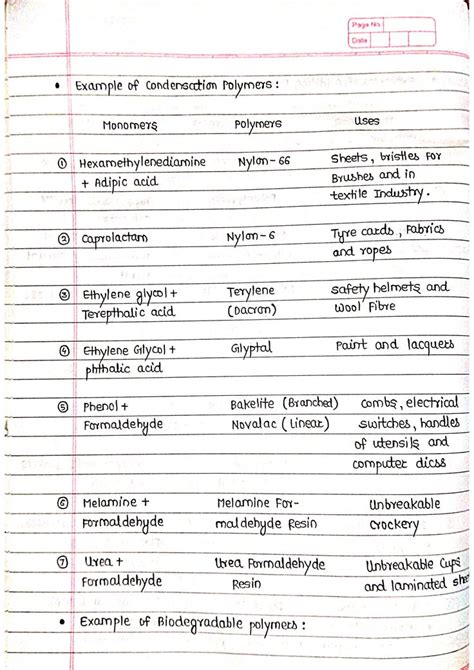 Page No.
Date
• Example of Condensation Polymers :
Monomers Polymers Uses
① Hexamethylenediamine Nylon-66 Sheets, bristles For
+ Adipic acid Brushes and in
textile Industry.
② Caprolactam Nylon-6 Tyre cards, Fabrics
and ropes
③ Ethylene glycol + Terylene safety helmets and
Terepthalic acid (Dacron) Wool Fibre
④ Ethylene Glycol + Glyptal Paint and lacquers
phthalic acid
⑤ Phenol + Bakelite (Branched) combs, electrical
Formaldehyde Novalac (Linear) switches, handles
of utensils and
computer dicss
⑥ Melamine + Melamine For- Unbreakable
Formaldehyde maldehyde Resin Crockery
⑦ Urea + Urea Formaldehyde Unbreakable Cups
Formaldehyde Resin and laminated
• Example of Biodegradable polymers :